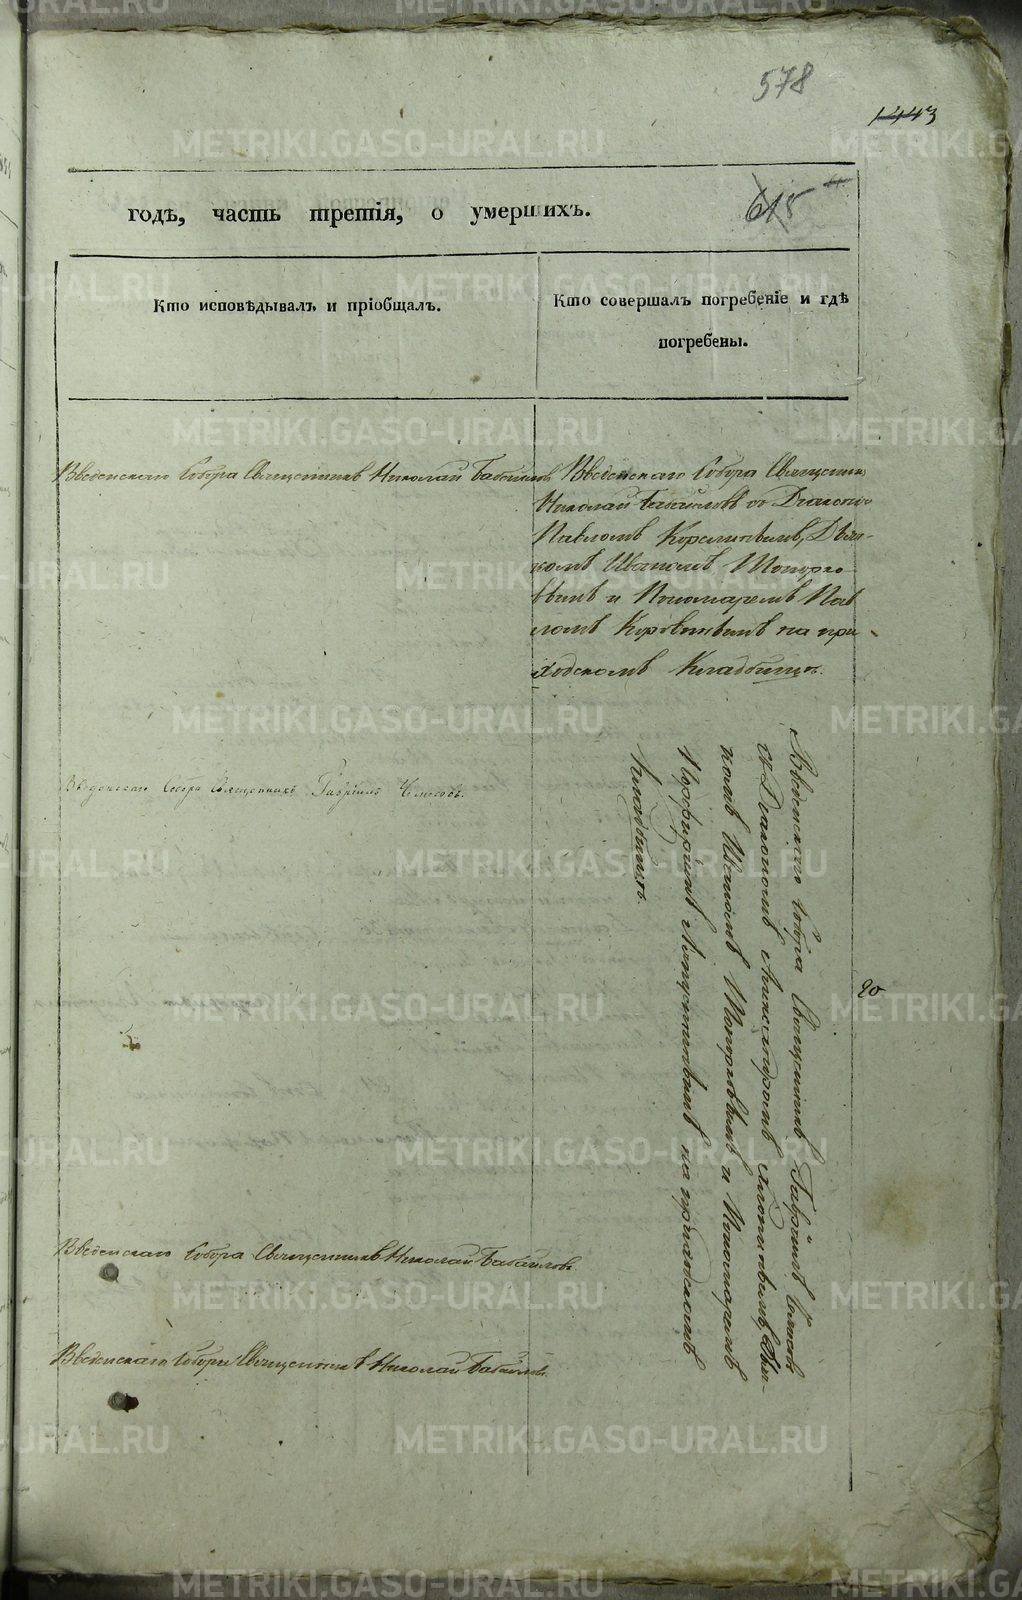 578
1443
615
годѣ, часть третія, о умершихъ.
Кто исповѣдывалъ и пріобщалъ.
Кто совершалъ погребеніе и гдѣ
погребены.
Введенскаго Собора Священникъ Николай Бабайловъ
Введенскаго Собора Священникъ
Николай Бабайловъ съ Діакономъ
Павломъ Дьяч-
комъ Иваномъ Топорко-
вымъ и Пономаремъ Пав
ломъ Коровинымъ на при
ходскомъ Кладбищѣ.
Введенскаго Собора Священникъ Гавріилъ
Введенскаго Собора Священникъ Гавріилъ
съ Діакономъ Александромъ Дья-
комъ Иваномъ Топорковымъ и Пономаремъ
Порфиріемъ на приходскомъ
Кладбищѣ.
20
Введенскаго Собора Священникъ Николай Бабайловъ
Введенскаго Собора Священникъ Николай Бабайловъ
METRIKI.GASO-URAL.RU